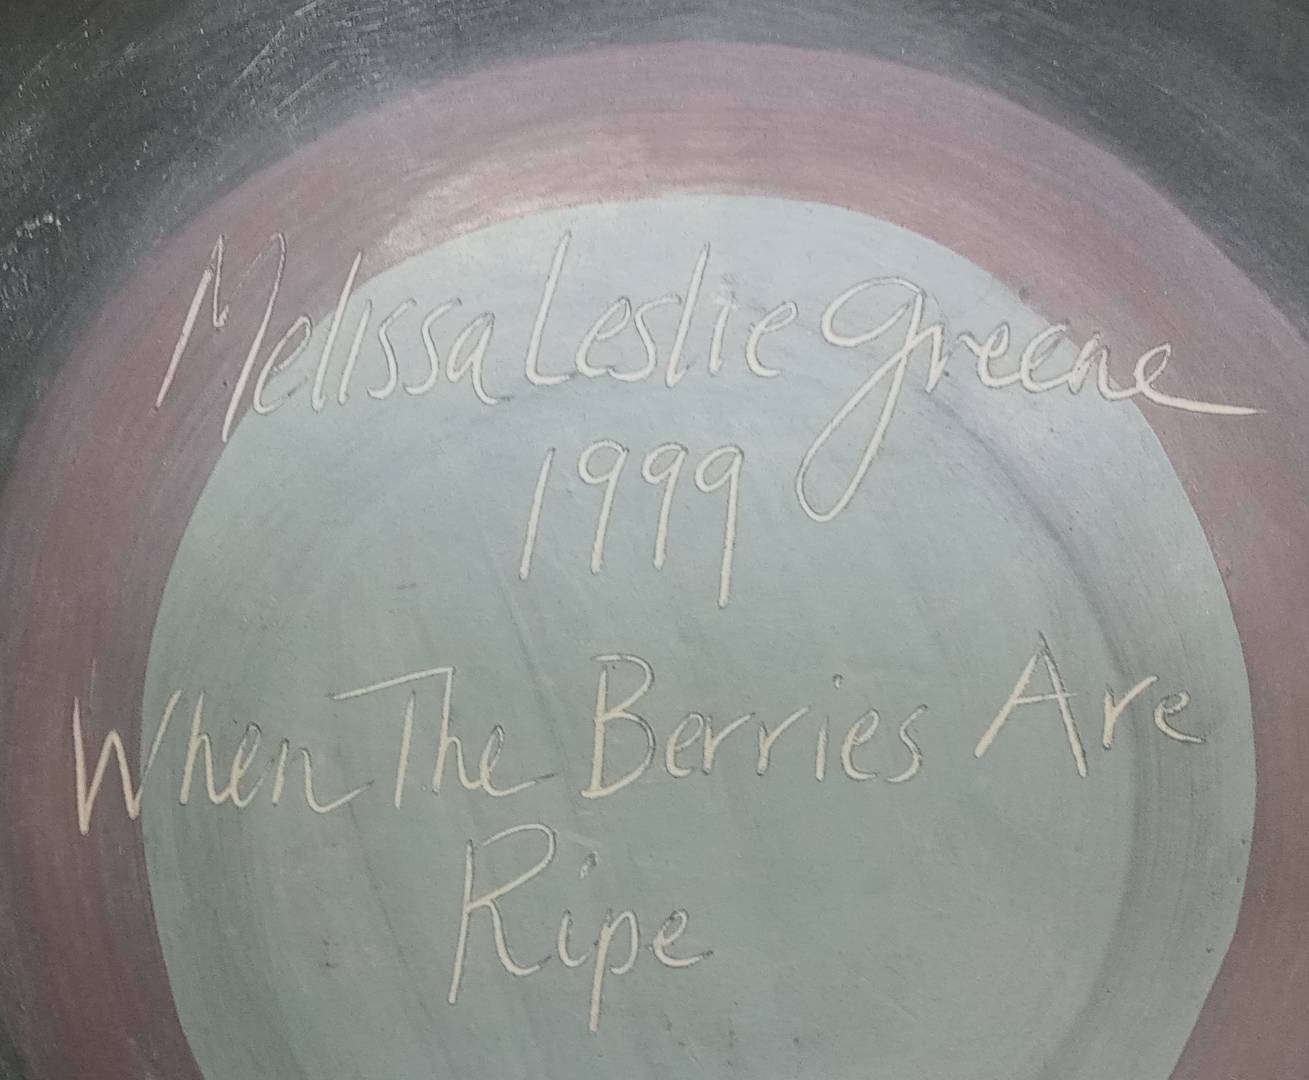 Melissa Leslie Greene
1999
When The Berries Are
Ripe